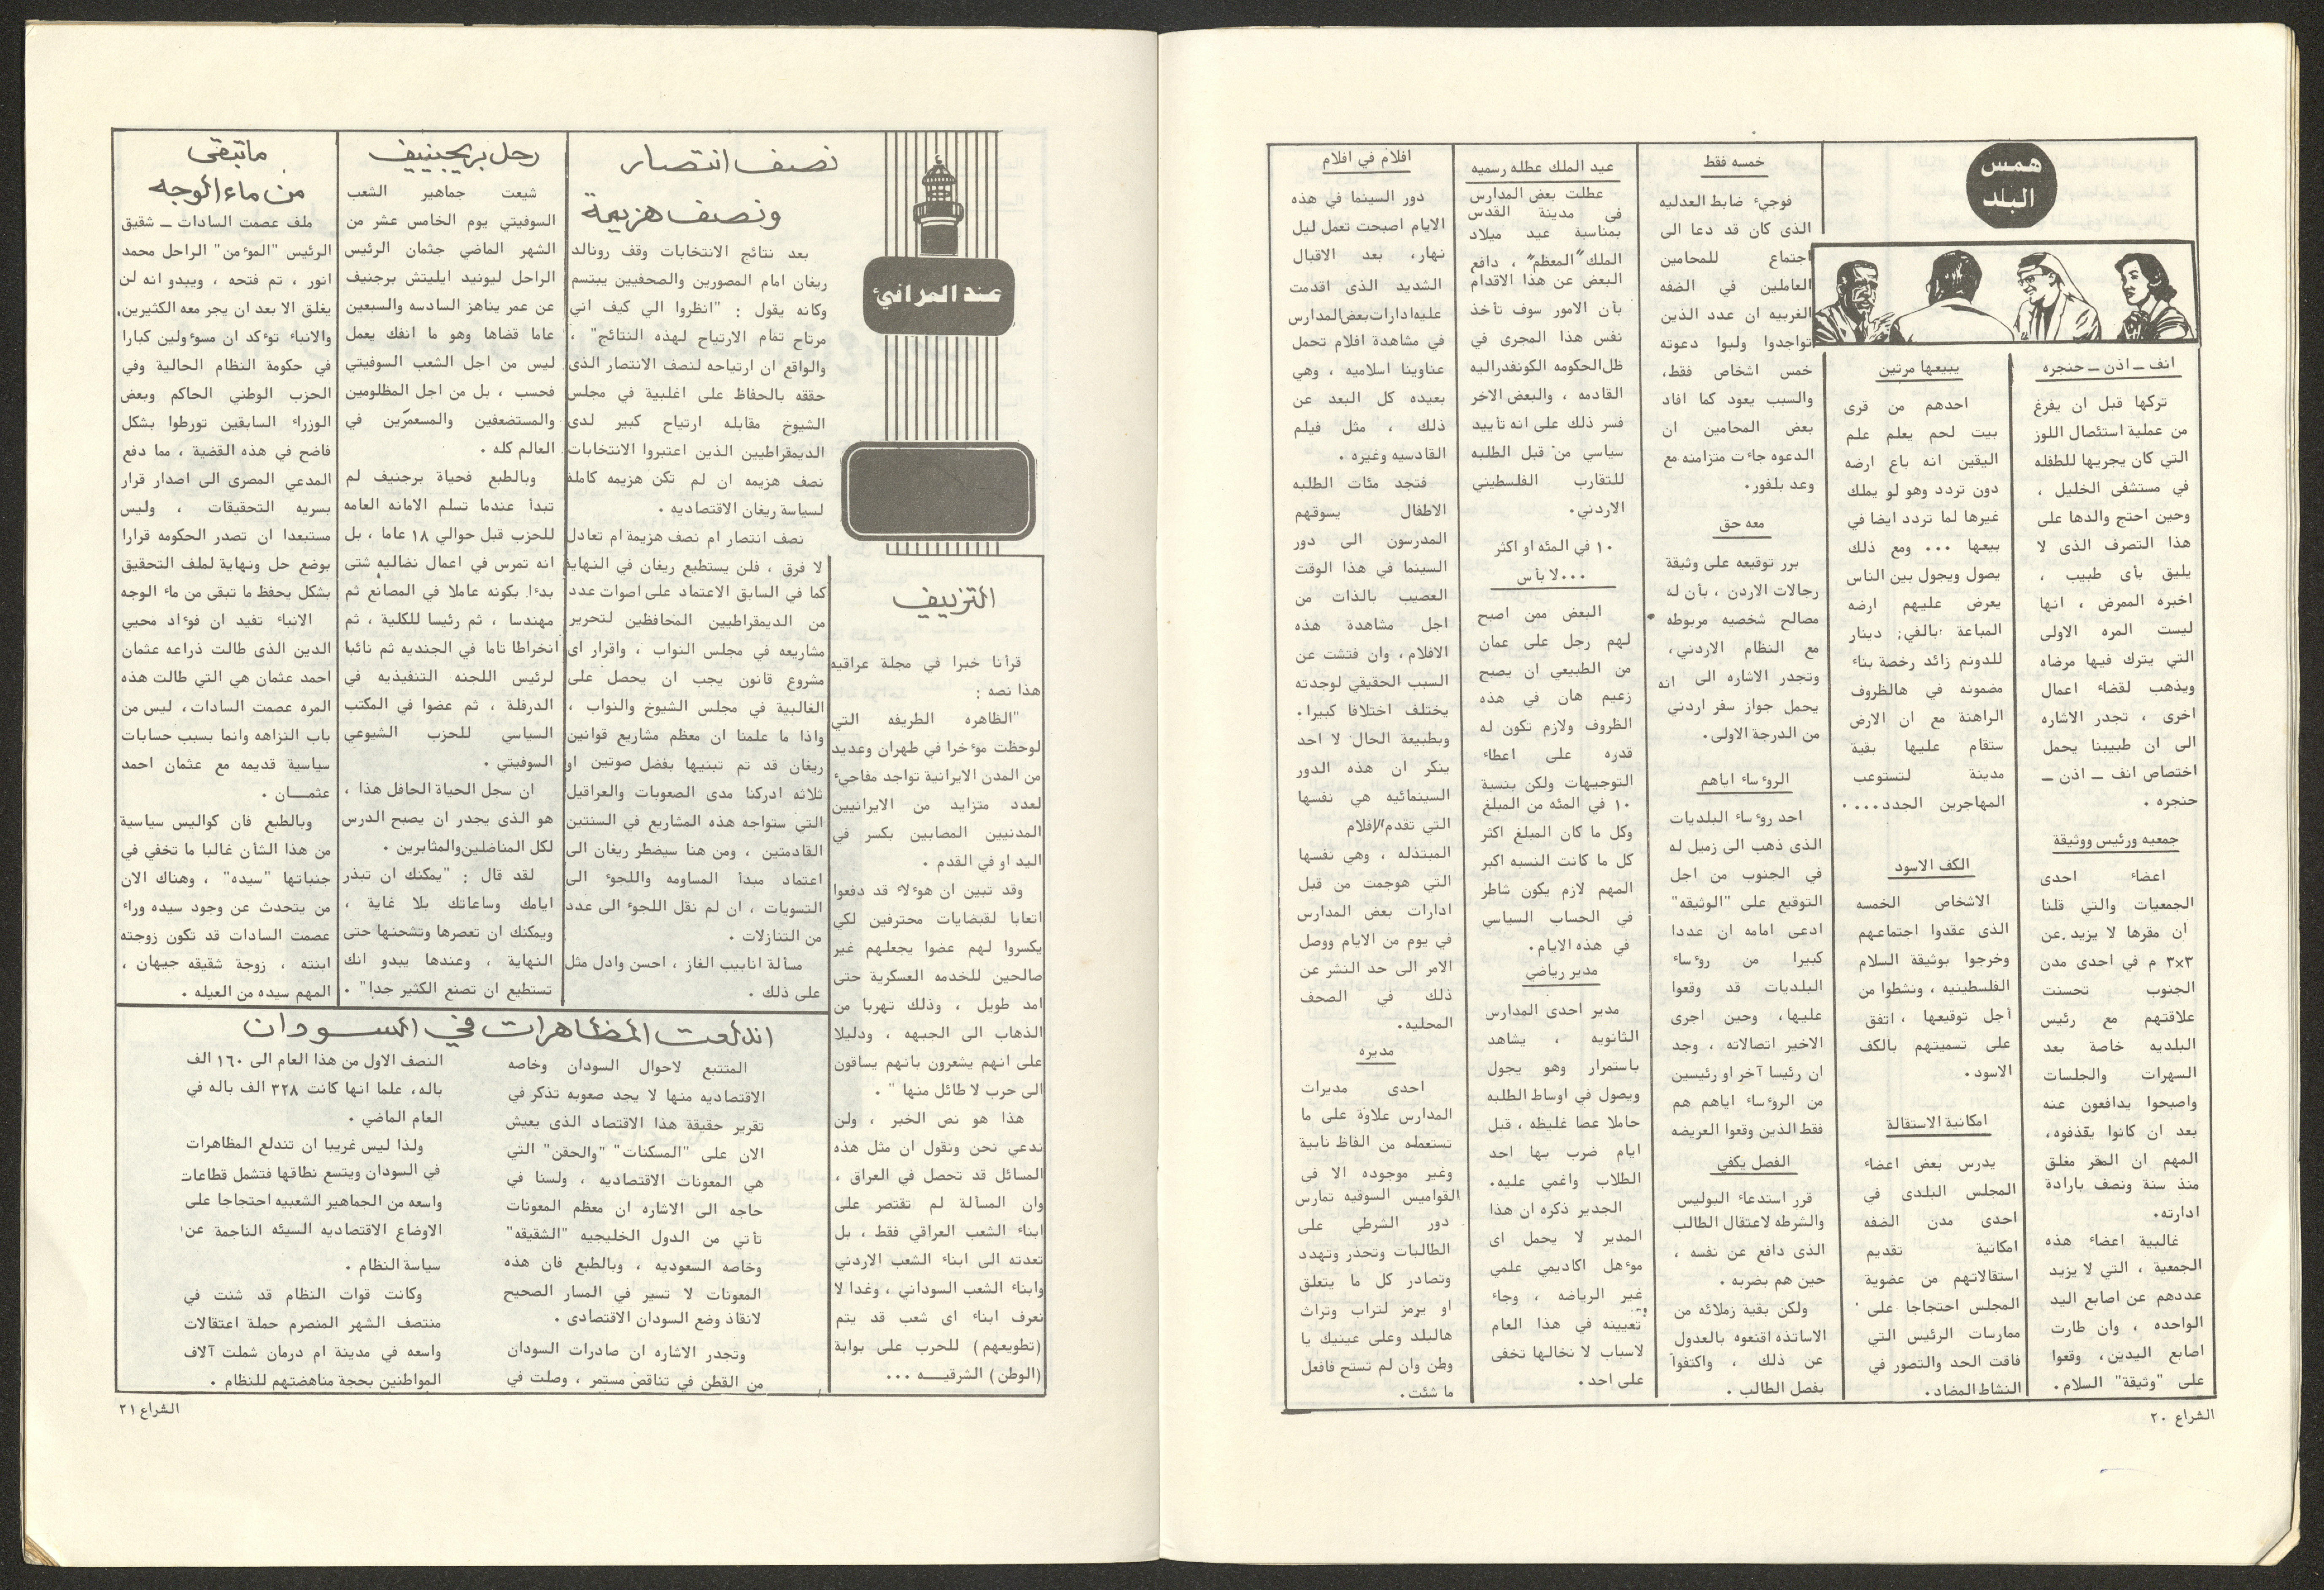 همس
البلد
انف ــ اذن ــ حنجره
تركها قبل ان يفرغ
من عملية استئصال اللوز
التي كان يجريها للطفله
في مستشفى الخليل ،
وحين احتج والدها على
هذا التصرف الذى لا
يليق بأى طبيب ،
اخبره الممرض ، انها
ليست المره الاولى
التي يترك فيها مرضاه
ويذهب لقضاء اعمال
اخرى ، تجدر الاشاره
الى ان طبيبنا يحمل
اختصاص انف ــ اذن ــ
حنجره .
جمعيه ورئيس ووثيقة
اعضاء احدى
الجمعيات والتي قلنا
ان مقرها لا يزيد عن
٣×٣ م في احدى مدن
الجنوب تحسنت
علاقتهم مع رئيس
البلديه خاصة بعد
السهرات والجلسات
واصبحوا يدافعون عنه
بعد ان كانوا يقذفوه،
المهم ان المقر مغلق
منذ سنة ونصف بارادة
ادارته.
غالبية اعضاء هذه
الجمعية ، التي لا يزيد
عددهم عن اصابع اليد
الواحده ، وان طارت
اصابع اليدين، وقعوا
على "وثيقة" السلام.
يبيعها مرتين
احدهم من قرى
بيت لحم يعلم علم
اليقين انه باع ارضه
دون تردد وهو لو يملك
غيرها لما تردد ايضا في
بيعها ... ومع ذلك
يصول ويجول بين الناس
يعرض عليهم ارضه
المباعة بالفي دينار
للدونم زائد رخصة بناء
مضمونه في هالظروف
الراهنة مع ان الارض
ستقام عليها بقية
مدينة لتستوعب
المهاجرين الجدد....
الكف الاسود
الاشخاص الخمسه
الذى عقدوا اجتماعهم
وخرجوا بوثيقة السلام
الفلسطينيه ، ونشطوا من
أجل توقيعها ، اتفق
على تسميتهم بالكف
الاسود.
امكانية الاستقالة
يدرس بعض اعضاء
المجلس البلدى في
احدى مدن الضفه
امكانية تقديم
استقالاتهم من عضوية
المجلس احتجاجا على
ممارسات الرئيس التي
فاقت الحد والتصور في
النشاط المضاد.
خمسه فقط
فوجىء ضابط العدليه
الذى كان قد دعا الى
اجتماع للمحامين
العاملين في الضفه
الغربيه ان عدد الذين
تواجدوا ولبوا دعوته
خمس اشخاص فقط،
والسبب يعود كما افاد
بعض المحامين ان
الدعوه جاءت متزامنه مع
وعد بلفور.
معه حق
برر توقيعه على وثيقة
رجالات الاردن ، بأن له
مصالح شخصيه مربوطه
مع النظام الاردني،
وتجدر الاشاره الى انه
يحمل جواز سفر اردني
من الدرجة الاولى.
الروءساء اياهم
احد روءساء البلديات
الذى ذهب الى زميل له
في الجنوب من اجل
التوقيع على "الوثيقه"
ادعى امامه ان عددا
كبيرا من روءساء
البلديات قد وقعوا
عليها، وحين اجرى
الاخير اتصالاته ، وجد
ان رئيسا آخر او رئيسين
من الروءساء اياهم هم
فقط الذين وقعوا العريضه
الفصل يكفي
قرر استدعاء البوليس
والشرطه لاعتقال الطالب
الذى دافع عن نفسه ،
حين هم بضربه .
ولكن بقية زملائه من
الاساتذه اقنعوه بالعدول
عن ذلك ، واكتفوا
بفصل الطالب .
عيد الملك عطله رسميه
عطلت بعض المدارس
في مدينة القدس
بمناسبة عيد ميلاد
الملك "المعظم" ، دافع
البعض عن هذا الاقدام
بأن الامور سوف تأخذ
نفس هذا المجرى في
ظل الحكومه الكونفدراليه
القادمه ، والبعض الاخر
فسر ذلك على انه تأييد
سياسي من قبل الطلبه
للتقارب الفلسطيني
الاردني.
١٠ في المئه او اكثر
...لا بأس
البعض ممن اصبح
لهم رجل على عمان
من الطبيعي ان يصبح
زعيم هان في هذه
الظروف ولازم تكون له
قدره على اعطاء
التوجيهات ولكن بنسبة
١٠ في المئه من المبلغ
وكل ما كان المبلغ اكثر
كل ما كانت النسبه اكبر
المهم لازم يكون شاطر
في الحساب السياسي
في هذه الايام.
مدير رياضي
مدير احدى المدارس
الثانويه ، يشاهد
باستمرار وهو يجول
ويصول في اوساط الطلبه
حاملا عصا غليظه ، قبل
ايام ضرب بها احد
الطلاب واغمي عليه.
الجدير ذكره ان هذا
المدير لا يحمل اى
موءهل اكاديمي علمي
غير الرياضه ، وجاء
تعيينه في هذا العام
لاسباب لا نخالها تخفى
على احد.
افلام في افلام
دور السينما في هذه
الايام اصبحت تعمل ليل
نهار، بعد الاقبال
الشديد الذى اقدمت
عليه ادارات بعض المدارس
في مشاهدة افلام تحمل
عناوينا اسلاميه ، وهي
بعيده كل البعد عن
ذلك ، مثل فيلم
القادسيه وغيره .
فتجد مئات الطلبه
الاطفال يسوقهم
المدرسون الى دور
السينما في هذا الوقت
العصيب بالذات من
اجل مشاهدة هذه
الافلام ، وان فتشت عن
السبب الحقيقي لوجدته
يختلف اختلافا كبيرا.
وبطبيعة الحال لا احد
ينكر ان هذه الدور
السينمائيه هي نفسها
التي تقدم الافلام
المبتذله ، وهي نفسها
التي هوجمت من قبل
ادارات بعض المدارس
في يوم من الايام ووصل
الامر الى حد النشر عن
ذلك في الصحف
المحليه.
مديره
احدى مديرات
المدارس علاوة على ما
تستعمله من الفاظ نابية
وغير موجوده الا في
القواميس السوقيه تمارس
دور الشرطي على
الطالبات وتحذر وتهدد
وتصادر كل ما يتعلق
او يرمز لتراب وتراث
هالبلد وعلى عينيك يا
وطن وان لم تستح فافعل
ما شئت.
الشراع ٢٠
عند المرافىء
التزييف
قرأنا خبرا في مجلة عراقيه
هذا نصه :
"الظاهره الطريفه التي
لوحظت موءخرا في طهران وعديد
من المدن الايرانية تواجد مفاجىء
لعدد متزايد من الايرانيين
المدنيين المصابين بكسر في
اليد او في القدم .
وقد تبين ان هوءلاء قد دفعوا
اتعابا لقبضايات محترفين لكي
يكسروا لهم عضوا يجعلهم غير
صالحين للخدمه العسكرية حتى
امد طويل ، وذلك تهربا من
الذهاب الى الجبهه ، ودليلا
على انهم يشعرون بانهم يساقون
الى حرب لا طائل منها " .
هذا هو نص الخبر ، ولن
ندعي نحن ونقول ان مثل هذه
المسائل قد تحصل في العراق ،
وان المسألة لم تقتصر على
ابناء الشعب العراقي فقط ، بل
تعدته الى ابناء الشعب الاردني
وابناء الشعب السوداني ، وغدا لا
نعرف ابناء اى شعب قد يتم
(تطويعهم) للحرب على بوابة
(الوطن) الشرقيـــه ...
نصف انتصار
ونصف هزيمة
بعد نتائج الانتخابات وقف رونالد
ريغان امام المصورين والصحفيين يبتسم
وكانه يقول : "انظروا الي كيف اني
مرتاح تمام الارتياح لهذه النتائج" ،
والواقع ان ارتياحه لنصف الانتصار الذى
حققه بالحفاظ على اغلبية في مجلس
الشيوخ مقابله ارتياح كبير لدى
الديمقراطيين الذين اعتبروا الانتخابات
نصف هزيمه ان لم تكن هزيمه كاملة
لسياسة ريغان الاقتصاديه .
نصف انتصار ام نصف هزيمة ام تعادل
لا فرق ، فلن يستطيع ريغان في النهاية
كما في السابق الاعتماد على اصوات عدد
من الديمقراطيين المحافظين لتحرير
مشاريعه في مجلس النواب ، واقرار اى
مشروع قانون يجب ان يحصل على
الغالبية في مجلس الشيوخ والنواب ،
واذا ما علمنا ان معظم مشاريع قوانين
ريغان قد تم تبنيها بفضل صوتين او
ثلاثه ادركنا مدى الصعوبات والعراقيل
التي ستواجه هذه المشاريع في السنتين
القادمتين ، ومن هنا سيضطر ريغان الى
اعتماد مبدأ المساومه واللجوء الى
التسويات ، ان لم نقل اللجوء الى عدد
من التنازلات .
مسألة انابيب الغاز ، احسن وادل مثل
على ذلك .
رحل بريجينيف
شيعت جماهير الشعب
السوفيتي يوم الخامس عشر من
الشهر الماضي جثمان الرئيس
الراحل ليونيد ايليتش برجنيف
عن عمر يناهز السادسه والسبعين
عاما قضاها وهو ما انفك يعمل
ليس من اجل الشعب السوفيتي
فحسب ، بل من اجل المظلومين
والمستضعفين والمسعمرين في
العالم كله .
وبالطبع فحياة برجنيف لم
تبدأ عندما تسلم الامانه العامه
للحزب قبل حوالي ١٨ عاما ، بل
انه تمرس في اعمال نضاليه شتى
بدءا بكونه عاملا في المصانع ثم
مهندسا ، ثم رئيسا للكلية ، ثم
انخراطا تاما في الجنديه ثم نائبا
لرئيس اللجنه التنفيذيه في
الدرفلة ، ثم عضوا في المكتب
السياسي للحزب الشيوعي
السوفيتي .
ان سجل الحياة الحافل هذا ،
هو الذى يجدر ان يصبح الدرس
لكل المناضلين والمثابرين .
لقد قال : "يمكنك ان تبذر
ايامك وساعاتك بلا غاية ،
ويمكنك ان تعصرها وتشحنها حتى
النهاية ، وعندها يبدو انك
تستطيع ان تصنع الكثير جدا" .
ماتبقى
من ماء الوجه
ملف عصمت السادات ــ شقيق
الرئيس "الموءمن" الراحل محمد
انور ، تم فتحه ، ويبدو انه لن
يغلق الا بعد ان يجر معه الكثيرين،
والانباء توءكد ان مسوءولين كبارا
في حكومة النظام الحالية وفي
الحزب الوطني الحاكم وبعض
الوزراء السابقين تورطوا بشكل
فاضح في هذه القضية ، مما دفع
المدعي المصرى الى اصدار قرار
بسريه التحقيقات ، وليس
مستبعدا ان تصدر الحكومه قرارا
بوضع حل ونهاية لملف التحقيق
بشكل يحفظ ما تبقى من ماء الوجه
الانباء تفيد ان فوءاد محيي
الدين الذى طالت ذراعه عثمان
احمد عثمان هي التي طالت هذه
المره عصمت السادات، ليس من
باب النزاهه وانما بسبب حسابات
سياسية قديمه مع عثمان احمد
عثمــان .
وبالطبع فان كواليس سياسية
من هذا الشأن غالبا ما تخفي في
جنباتها "سيده" ، وهناك الان
من يتحدث عن وجود سيده وراء
عصمت السادات قد تكون زوجته
ابنته ، زوجة شقيقه جيهان ،
المهم سيده من العيله .
اندلعت المظاهرات في السودان
المتتبع لاحوال السودان وخاصه
الاقتصاديه منها لا يجد صعوبه تذكر في
تقرير حقيقة هذا الاقتصاد الذى يعيش
الان على "المسكنات" "والحقن" التي
هي المعونات الاقتصاديه ، ولسنا في
حاجه الى الاشاره ان معظم المعونات
تأتي من الدول الخليجيه "الشقيقه"
وخاصه السعوديه ، وبالطبع فان هذه
المعونات لا تسير في المسار الصحيح
لانقاذ وضع السودان الاقتصادى .
وتجدر الاشاره ان صادرات السودان
من القطن في تناقص مستمر ، وصلت في
النصف الاول من هذا العام الى ١٦٠ الف
باله، علما انها كانت ٣٢٨ الف باله في
العام الماضي .
ولذا ليس غريبا ان تندلع المظاهرات
في السودان ويتسع نطاقها فتشمل قطاعات
واسعه من الجماهير الشعبيه احتجاجا على
الاوضاع الاقتصاديه السيئه الناجمة عن
سياسة النظام .
وكانت قوات النظام قد شنت في
منتصف الشهر المنصرم حملة اعتقالات
واسعه في مدينة ام درمان شملت آلاف
المواطنين بحجة مناهضتهم للنظام .
الشراع ٢١